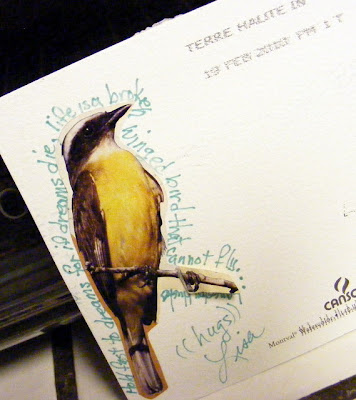 TERRE HAUTE IN
19 FEB PM 1 T
Hold fast to dreams for if dreams die, life is a broken winged bird that cannot fly...
((hugs))
Lisa
CANSO
Montval